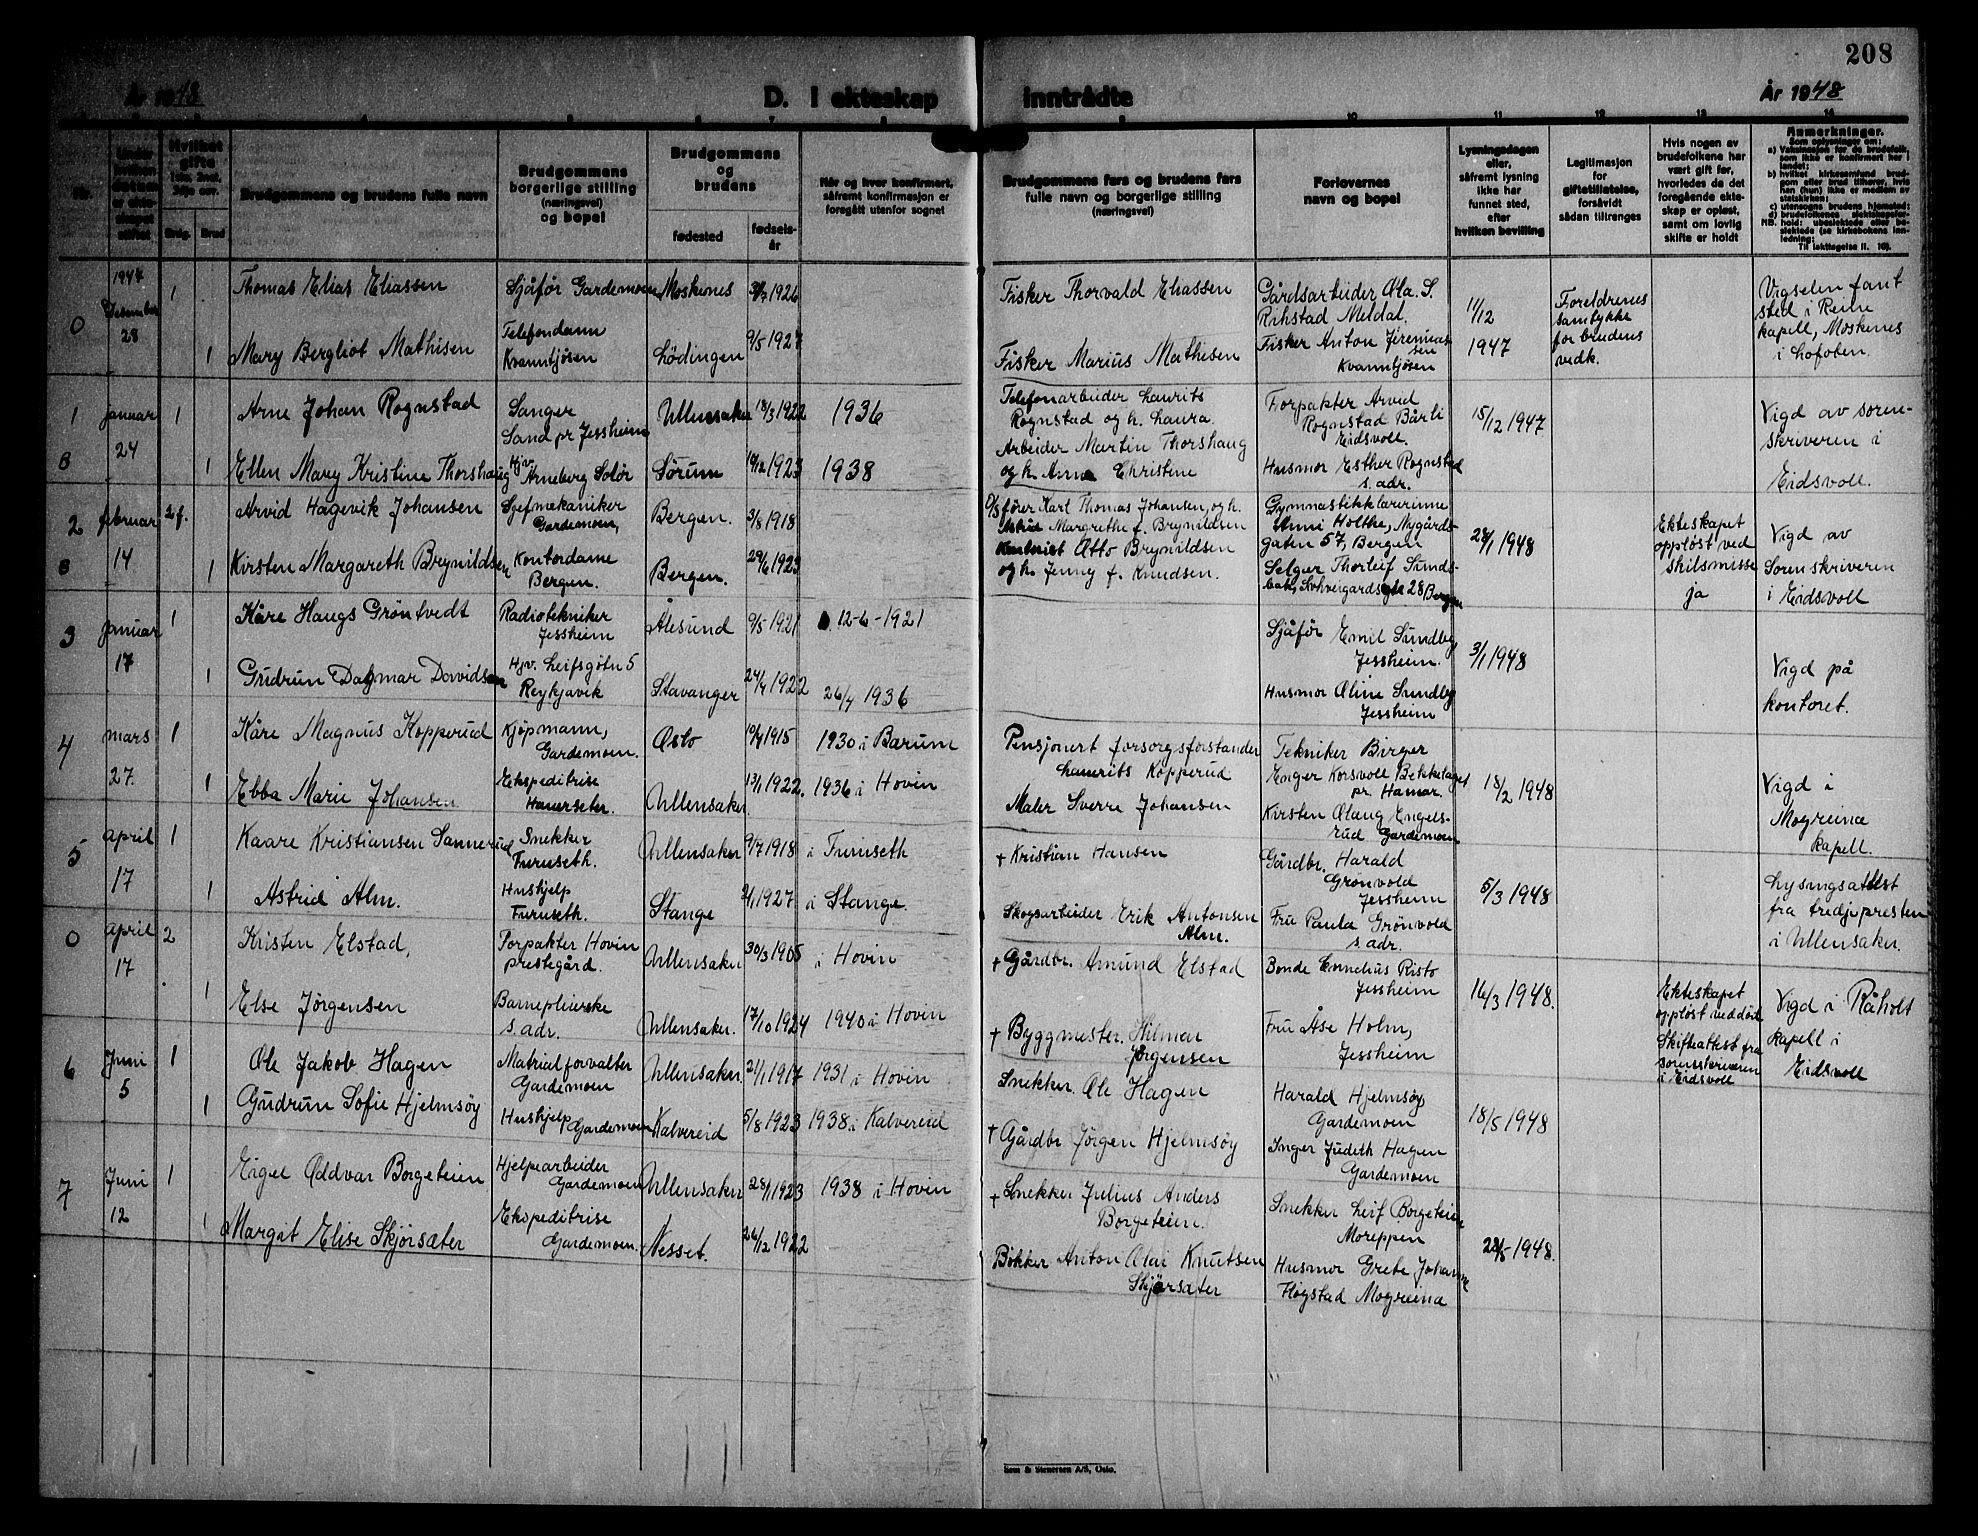 208
År 1948
D. I ekteskap inntrådte
År 1948
Hvilket gifte
Brudg. Brud
Brudgommens og brudens fulle navn
Brudgommens borgerlige stilling (næringsvei) og bopel
Brudgommens og brudens
fødested
fødselsår
Når og hvor konfirmert, såfremt konfirmasjon er foregått utenfor sognet
Brudgommens fars og brudens fars fulle navn og borgerlige stilling (næringsvei)
Forlovernes navn og bopel
Lysningsdagen eller, såfremt lysning ikke har funnet sted, efter hvilken bevilling
Legitimasjon for giftetillatelse, forsåvidt sådan tiltrenges
Hvis nogen av brudefolkene har vært gift før, hvorledes da det foregående ekteskap er opløst, samt om lovlig skifte er holdt
Anmerkninger.
0 1947 Desember 28
1 Thomas Elias Eliassen
Sjåfør Gardemoen
Moskenes 1926
Fisker Thorvald Eliassen
Gårdsarbeider Ola. S.
Rikstad Meldal.
11/12 1947
Foreldrenes
samtykke
for brudens
vedk.
Vigselen funt
sted i Reine
kapell, Moskenes
i Lofoten.
1 Mary Bergliot Mathisen
Telefondame
Kvanntjösen
Lödingen 9/5 1927
Fisker Marius Mathisen
Fisker Anton Jeremiassen
Kvanntjösen
1 januar 24
1 Arne Johan Rognstad
Sanger
Sand pr Jessheim
Ullensaker 18/3 1922
1936
Telefonarbeider Laurits
Rognstad og h. Laura
Forpakter Arvid
Rognstad Bårli
Eidsvoll.
15/12 1947
Vigd av soren-
skriveren i
Eidsvoll.
8
1 Ellen Mary Kristine Thorshaug
Hjv.
Arneberg Solør
Sørum 14/12 1923
1938
Arbeider Martin Thorshaug
og h. Anna Christine
Husmor Esther Rognstad
s. adr.
2 februar 14
2 f. Arvid Hagevik Johansen
Sjefmekaniker
Gardemoen,
Bergen. 3/8 1918
D/S fører Karl Thomas Johansen, og h.
Margrethe f. Brynildsen
Gymnastikklærerinne
Anni Holthe, Nygårds-
gaten 57, Bergen
28/1 1948
Ekteskapet
oppløst ved
skilsmisse
ja
Vigd av
Sorenskriveren
i Eidsvoll
8
1 Kirsten Margareth Brynildsen
Kontordame
Bergen.
Bergen. 29/6 1923
Otto Brynildsen
og h. Jenny f. Knudsen.
Selger Thorleif Sunds-
28 Bergen
3 januar 17
1 Kåre Haugs Gröntvedt
Radiotekniker
Jessheim
Ålesund 9/5 1921
12-6-1921
Sjåfør Emil Sundby
Jessheim.
3/1 1948
Vigd på
kontoret.
1 Gudrun Dagmar Davidsen
Hjv. Leifsgötu 5
Reykjavik
Stavanger 1922
26/4 1936
Husmor Oline Sundby
Jessheim
4 mars 27.
1 Kåre Magnus Kopperud
Kjøpmann,
Gardemoen.
Oslo 1915
1930 i Bærum
Pensjonert forsorgsforstander
Laurits Kopperud
Tekniker Birger
Enger Korsvoll Bekkelaget
pr. Hamar.
18/2 1948
Vigd i
Mogreina
kapell.
1 Ebba Marie Johansen
Ekspeditrise
Hauerseter.
Ullensaker. 13/1 1922.
1936 i Hovin
Maler Sverre Johansen
Kirsten Olaug Engels-
rud Gardemoen
5 april 17
1 Kaare Kristiansen Sannerud
Snekker
Furuseth.
Ullensaker 9/7 1918
i Furuseth
+ Kristian Hansen
Gårdbr. Harald
Grønvold
Jessheim
5/3 1948
Lysingsattest
fra tredjepresten
i Ullensaker.
1 Astrid Alm.
Hushjelp
Furuseth.
Stange 2/1 1927
i Stange.
Skogsarbeider Erik Antonsen
Alm.
Fru Paula Grönvold
s. adr.
0 april 17
2 Kristen Elstad,
Forpakter Hovin
prestegård.
Ullensaker 30/3 1905
i Hovin
+ Gårdbr. Amund Elstad
Bonde Cornelius Risto
Jessheim
16/3 1948.
Ekteskapet
oppløst ved død
Skifteattest fra
sorenskriveren
i Eidsvoll
Vigd i Råholt
kapell i
Eidsvoll
1 Else Jörgensen
Barnepleierske
s. adr.
Ullensaker. 17/10 1924
1940 i Hovin
+ Byggmester. Hilmar
Jørgensen
Fru Åse Holm,
Jessheim
6 Juni 5
1 Ole Jakob Hagen
Matrielforvalter
Gardemoen
Ullensaker. 21/1 1917
1931 i Hovin
Snekker. Ole Hagen
Harald Hjelmsöy
Gardemoen
18/5 1948
1 Gudrun Sofie Hjelmsöy
Hushjelp
Gardemoen
Kalvereid 5/8 1923
1938 i Kalvereid
+ Gårdbr Jörgen Hjelmsöy
Inger Judith Hagen
Gardemoen
7 Juni 12
1 Eigel Oddvar Borgeteien
Hjelpearbeider
Gardemoen
Ullensaker 28/1 1923
1938 i Hovin
+ Snekker Julius Anders
Borgeteien.
Snekker Leif Borgeteien
Moreppen
28/5-1948.
1 Margit Elise Skjörsæter
Ekspeditrise
Gardemoen.
Nesset. 26/12 1922
Bökker Anton Olai Knutsen
Skjørsæter
Husmor Grete Johanne
Flogstad Mogreina
Sem & Stenersen A/S, Oslo.